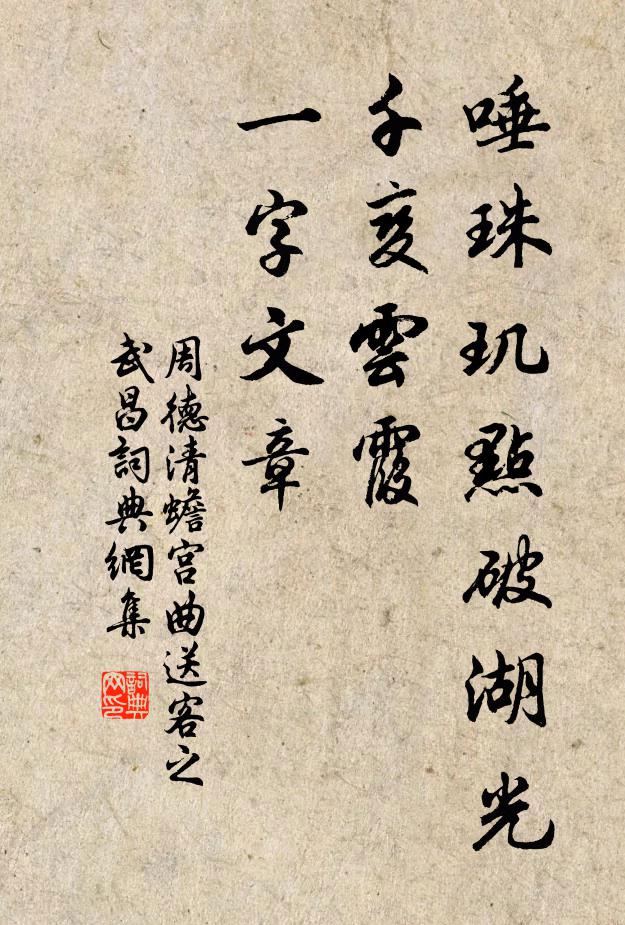 唾珠玑點破湖光
千变雲霞
一字文章
周德清蟾宫曲送客之
武昌詞典網集
詞典网印